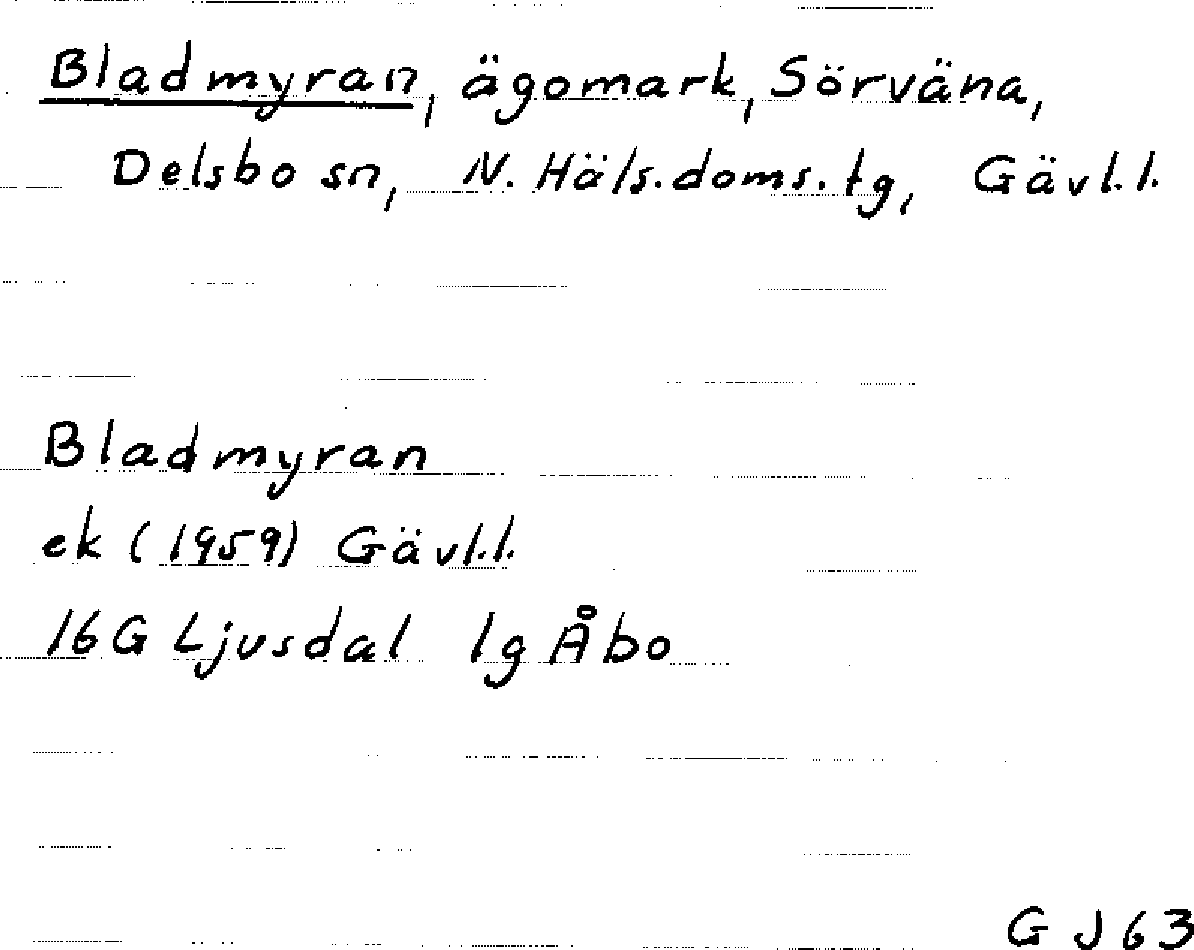 Bladmyran, ägomark, Sörväna,
Delsbo sn, N. Häls. doms. tg, Gävl. l.
Bladmyran
ek (1959) Gävl. l.
16G Ljusdal 1g Åbo
G J 63